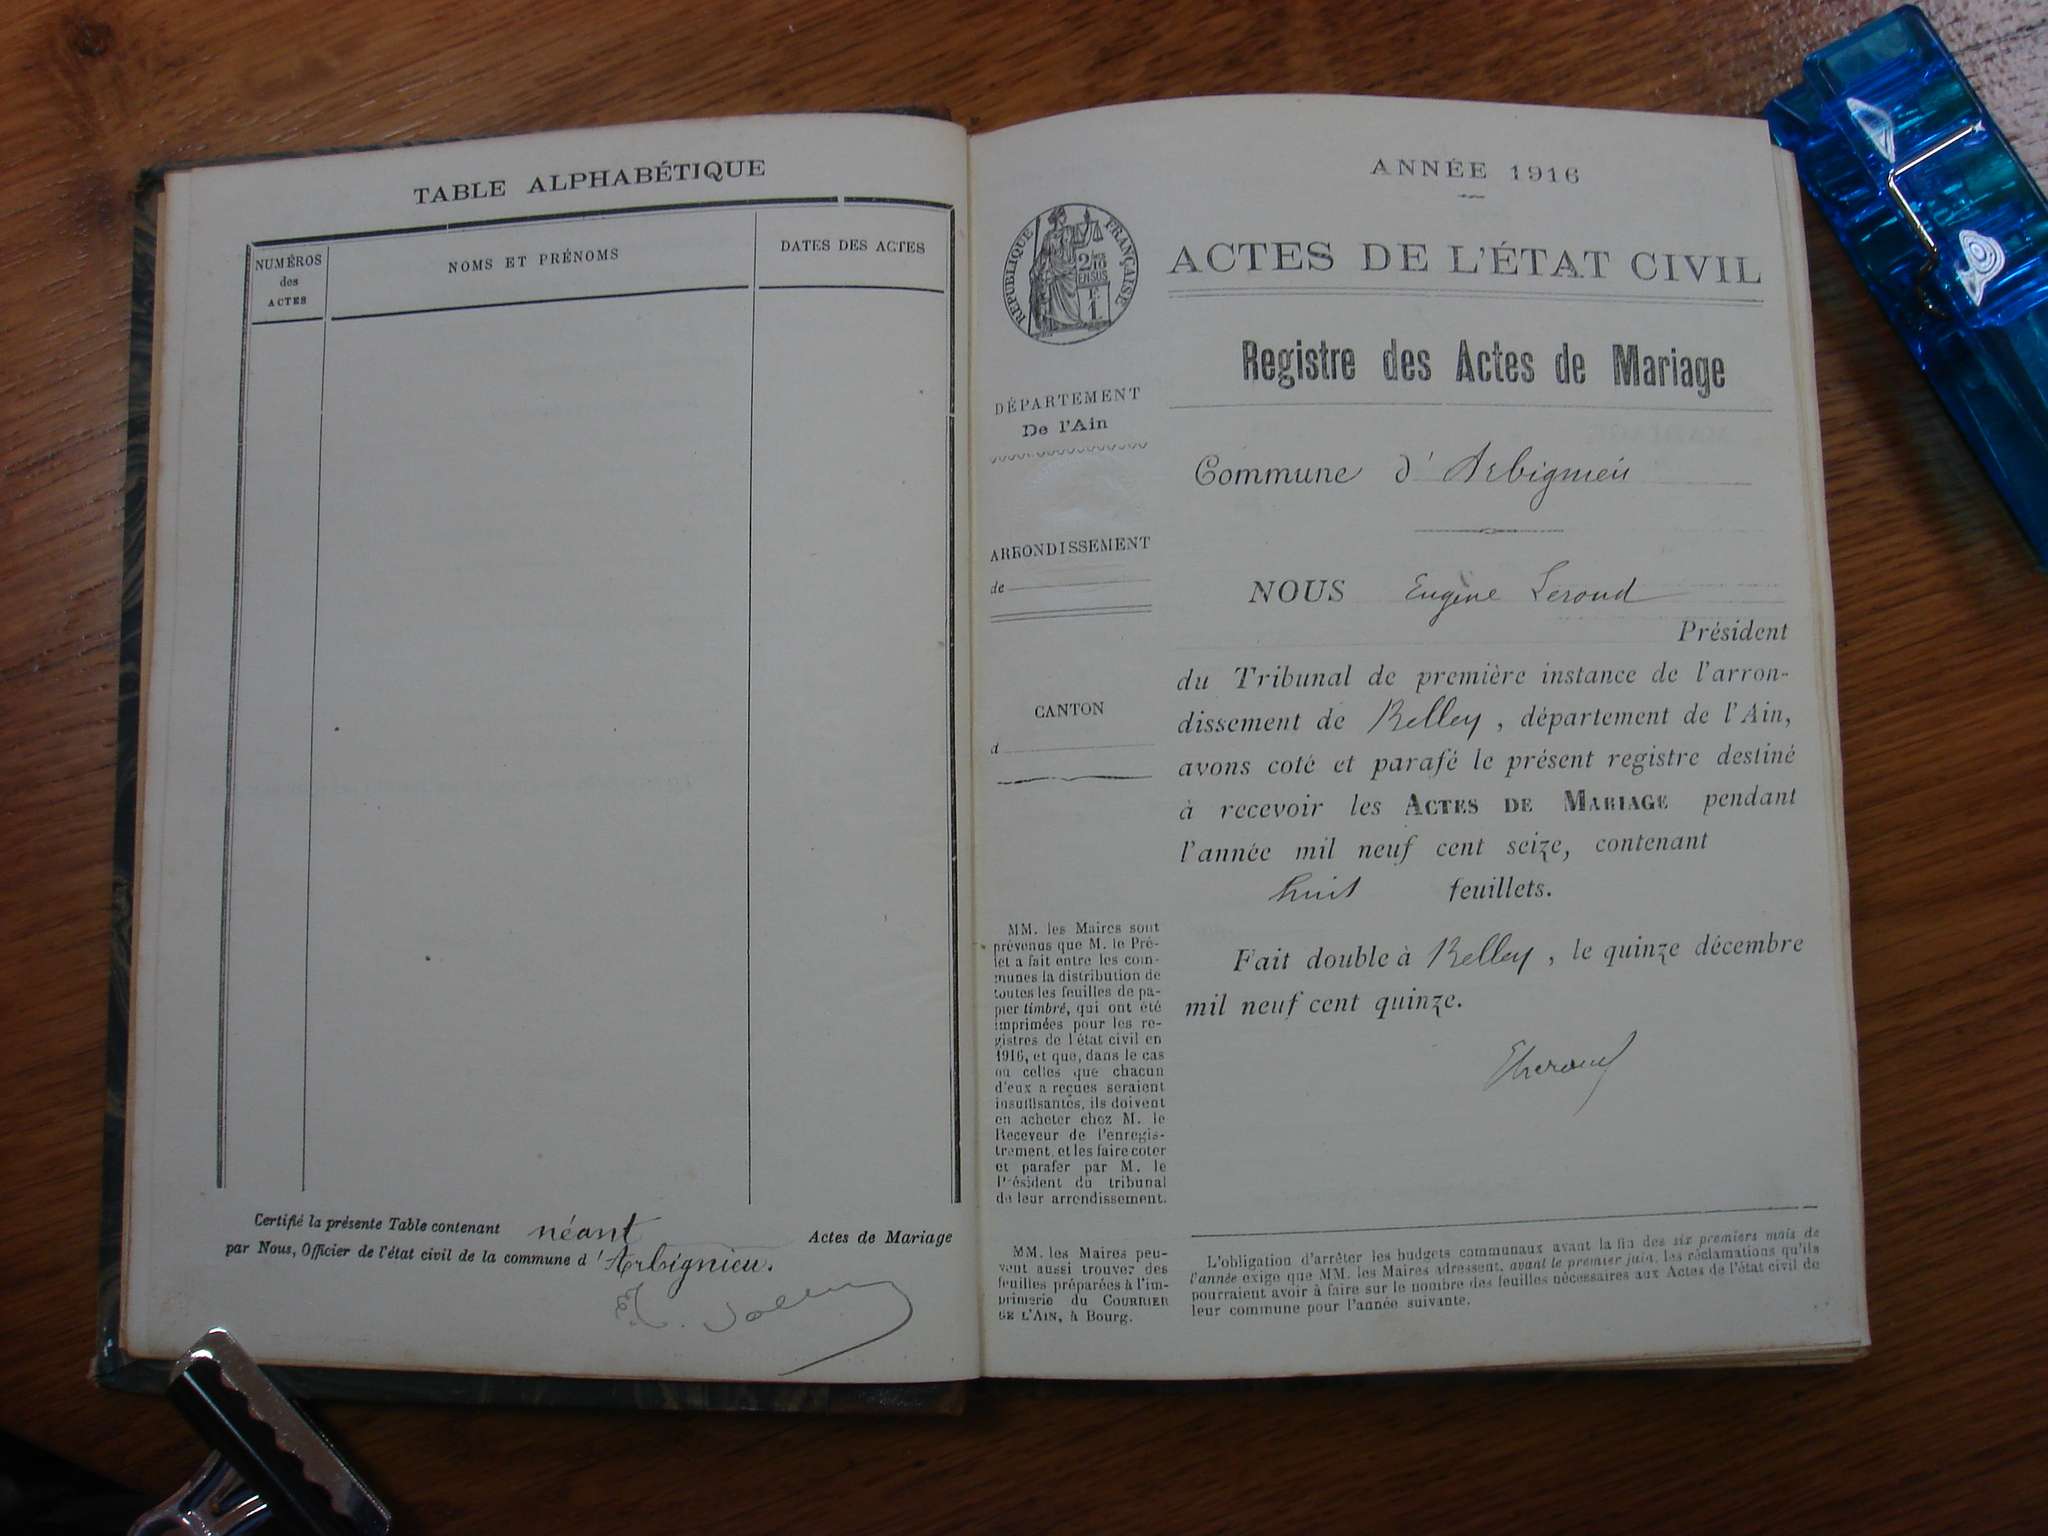 TABLE ALPHABÉTIQUE
NUMÉROS
des
ACTES
NOMS ET PRÉNOMS
DATES DES ACTES
Certifié la présente Table contenant néant Actes de Mariage
par Nous, Officier de l'état civil de la commune d'Arbignieu.
ANNÉE 1916
RÉPUBLIQUE FRANÇAISE
2/10
EN SUS
1 F
ACTES DE L'ÉTAT CIVIL
Registre des Actes de Mariage
DÉPARTEMENT
De l'Ain
ARRONDISSEMENT
de
CANTON
d
Commune d'Arbignieu
NOUS Eugène Leroud
Président
du Tribunal de première instance de l'arron-
dissement de Belley, département de l'Ain,
avons coté et parafé le présent registre destiné
à recevoir les ACTES DE MARIAGE pendant
l'année mil neuf cent seize, contenant
huit feuillets.
Fait double à Belley, le quinze décembre
mil neuf cent quinze.
MM. les Maires sont
prévenus que M. le Pré-
fet a fait entre les com-
munes la distribution de
toutes les feuilles de pa-
pier timbré, qui ont été
imprimées pour les re-
gistres de l'état civil en
1916, et que, dans le cas
où celles que chacun
d'eux a reçues seraient
insuffisantes, ils doivent
en acheter chez M. le
Receveur de l'enregis-
trement, et les faire coter
et parafer par M. le
Président du tribunal
de leur arrondissement.
MM. les Maires peu-
vent aussi trouver des
feuilles préparées à l'im-
primerie du COURRIER
DE L'AIN, à Bourg.
L'obligation d'arrêter les budgets communaux avant la fin des six premiers mois de
l'année exige que MM. les Maires adressent, avant le premier juin, les réclamations qu'ils
pourraient avoir à faire sur le nombre des feuilles nécessaires aux Actes de l'état civil de
leur commune pour l'année suivante.